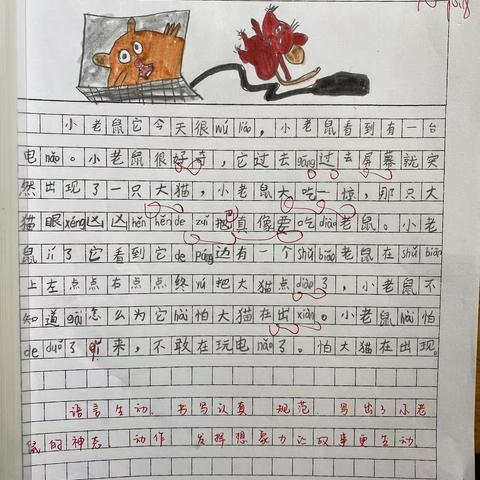 小老鼠它今天很wú liáo，小老鼠看到有一台
电nǎo。小老鼠很好奇，它过去gāng过去屏幕就突
然出现了一只大猫，小老鼠大吃一惊，那只大
猫眼xéng凶凶hěn hěn de zuǐ 把真像要吃diào老鼠。小老
鼠jí了它看到它de páng边有一个shǔ biāo老鼠在shǔ biāo
上左点点右点点终yú把大猫点diào了，小老鼠不
知道gāi怎么为它hài怕大猫在出xiàn。小老鼠hài怕
de duǒ了qǐ来，不敢在玩电nǎo了。怕大猫在出现。
语言生动 书写认真 规范 写出了小老
鼠的神态 动作 发挥想象力让故事更生动